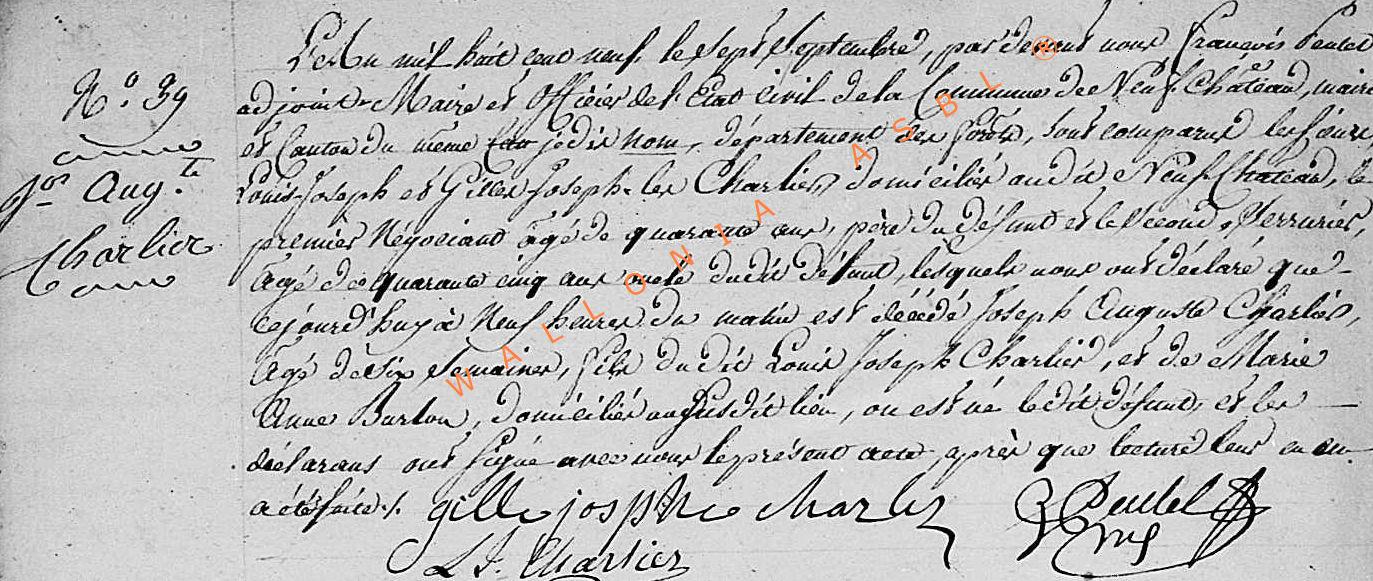 N.° 39
Jos. Aug.te
Charlier
L'an mil huit cent neuf, le sept septembre, par devant nous François Peutel
adjoint-Maire et officier de l'Etat civil de la Commune de Neuf-Château, mairie
et Canton du même je dis nom, département des forêts, sont comparus les sieurs
Louis-Joseph et Gilles Joseph les Charlier, domiciliés audit Neuf-Chateau, le
premier Négociant âgé de quarante ans, père du défunt et le second, serrurier,
âgé de quarante cinq ans oncle du dit défunt, lesquels nous ont déclaré que
cejourd'huy à Neuf heures du matin est décédé Joseph Auguste Charlier,
âgé de six semaines, fils du dit Louis Joseph Charlier, et de Marie
Anne Burton, domiciliés au susdit lieu, où est né le dit défunt, et les
déclarans ont signé avec nous le présent acte, après que lecture leur en
a été faite./.
gille josphe charlier
Peutel
L J. Charlier
WALLONIA ASBL ®